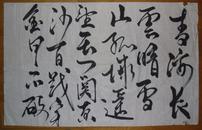 青海長
雲暗雪
山孤城遥
望玉门關黄
沙百戰穿
金甲不破